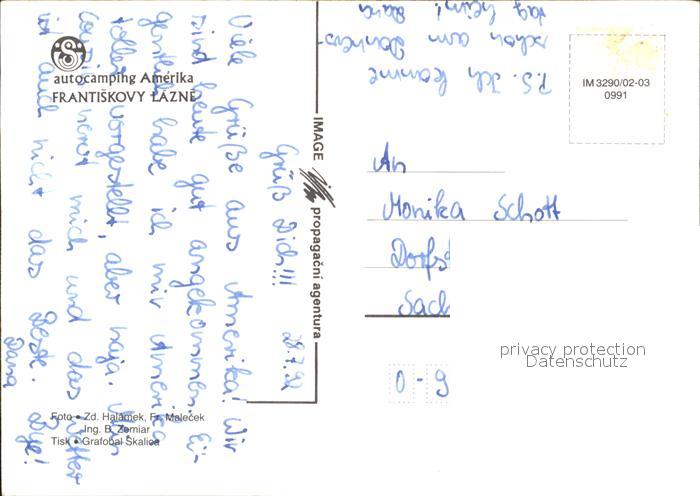 autocamping Amerika
FRANTIŠKOVY LÁZNĚ
28.7.92
Grüß Dich!!!
Viele Grüße aus Amerika! Wir
sind heute gut angekommen. Ei-
gentlich habe ich mir Amerika
toller vorgestellt, aber naja.
nervt mich und das Wetter
ist auch nicht das Beste. Bye!
Dana
P.S. Ich komme
schon am Donners-
tag heim!
Dana
IMAGE propagační agentura
IM 3290/02-03
0991
An
Monika Schott
Dorfs
Sach
O - 9
privacy protection
Datenschutz
Foto • Zd. Halámek, Fr. Maleček
Ing. B. Zemiar
Tisk • Grafobal Skalica